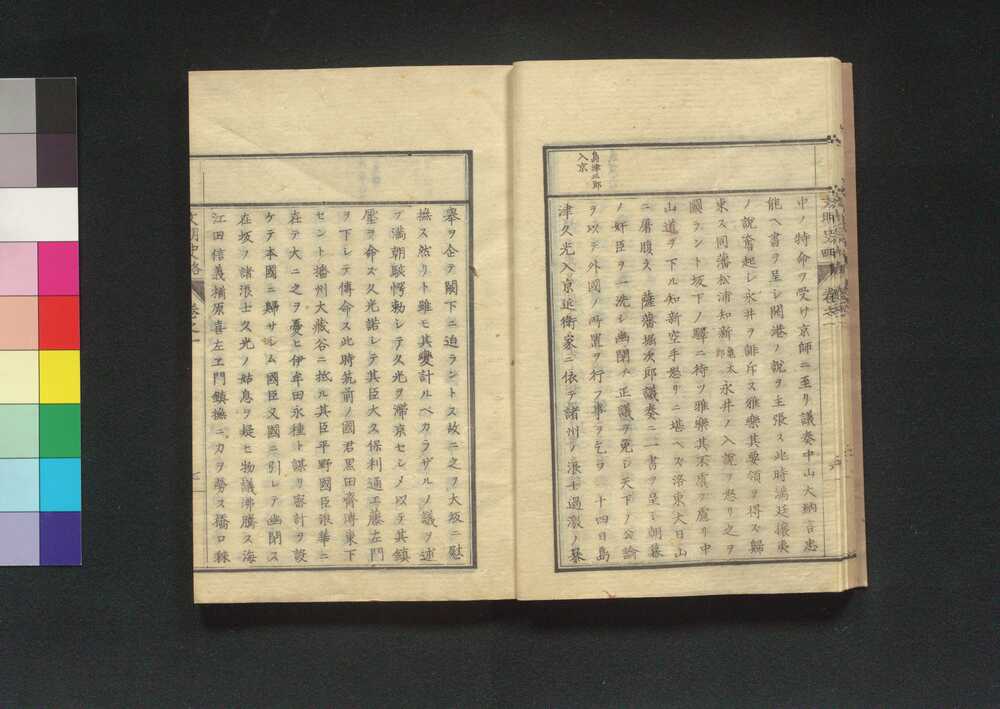 島津三郎
入京
中ノ特命ヲ受ケ京師ニ至リ議奏中山大納言忠
能ヘ書ヲ呈シ開港ノ說ヲ主張ス此時滿廷攘夷
ノ說奮起シ永井ヲ誹斥ス雅樂其要領ヲ得ス歸
東ス同藩松浦知新龜太郎永井ノ入說ヲ怒リ之ヲ
圖ラント坂下ノ驛ニ待ツ雅樂其不虞ヲ慮リ中
山道ヲ下ル知新空手怒リニ堪ヘス洛東大日山
ニ屠腹ス 薩藩堀次郎議奏ニ一書ヲ呈シ朝幕
ノ奸臣ヲ一洗シ幽閉ノ正議ヲ免シ天下ノ公論
ヲ以テ外國ノ所置ヲ行フ事ヲ乞フ 十四日島
津久光入京近衛家ニ依テ諸州ノ浪士過激ノ暴
擧ヲ企テ闕下ニ迫ラントス故ニ之ヲ大坂ニ慰
撫ス然リト雖モ其變計ルベカラザルノ議ヲ述
ブ滿朝駭愕勅シテ久光ヲ滯京セシメ以テ其鎮
壓ヲ命ス久光諾シテ其臣大久保利通工藤左門
ヲ下シテ傳命ス此時筑前ノ國君黒田齊溥東下
セント播州大藏谷ニ抵ル其臣平野國臣浪華ニ
在テ大ニ之ヲ憂ヒ伊牟田永種ト謀リ密計ヲ設
ケテ本國ニ歸サシム國臣又國ニ引レテ幽閉ス
在坂ノ諸浪士久光ノ姑息ヲ疑ヒ物議沸騰ス海
江田信義橋原喜左ヱ門鎮撫ニ力ヲ勞ス橋口